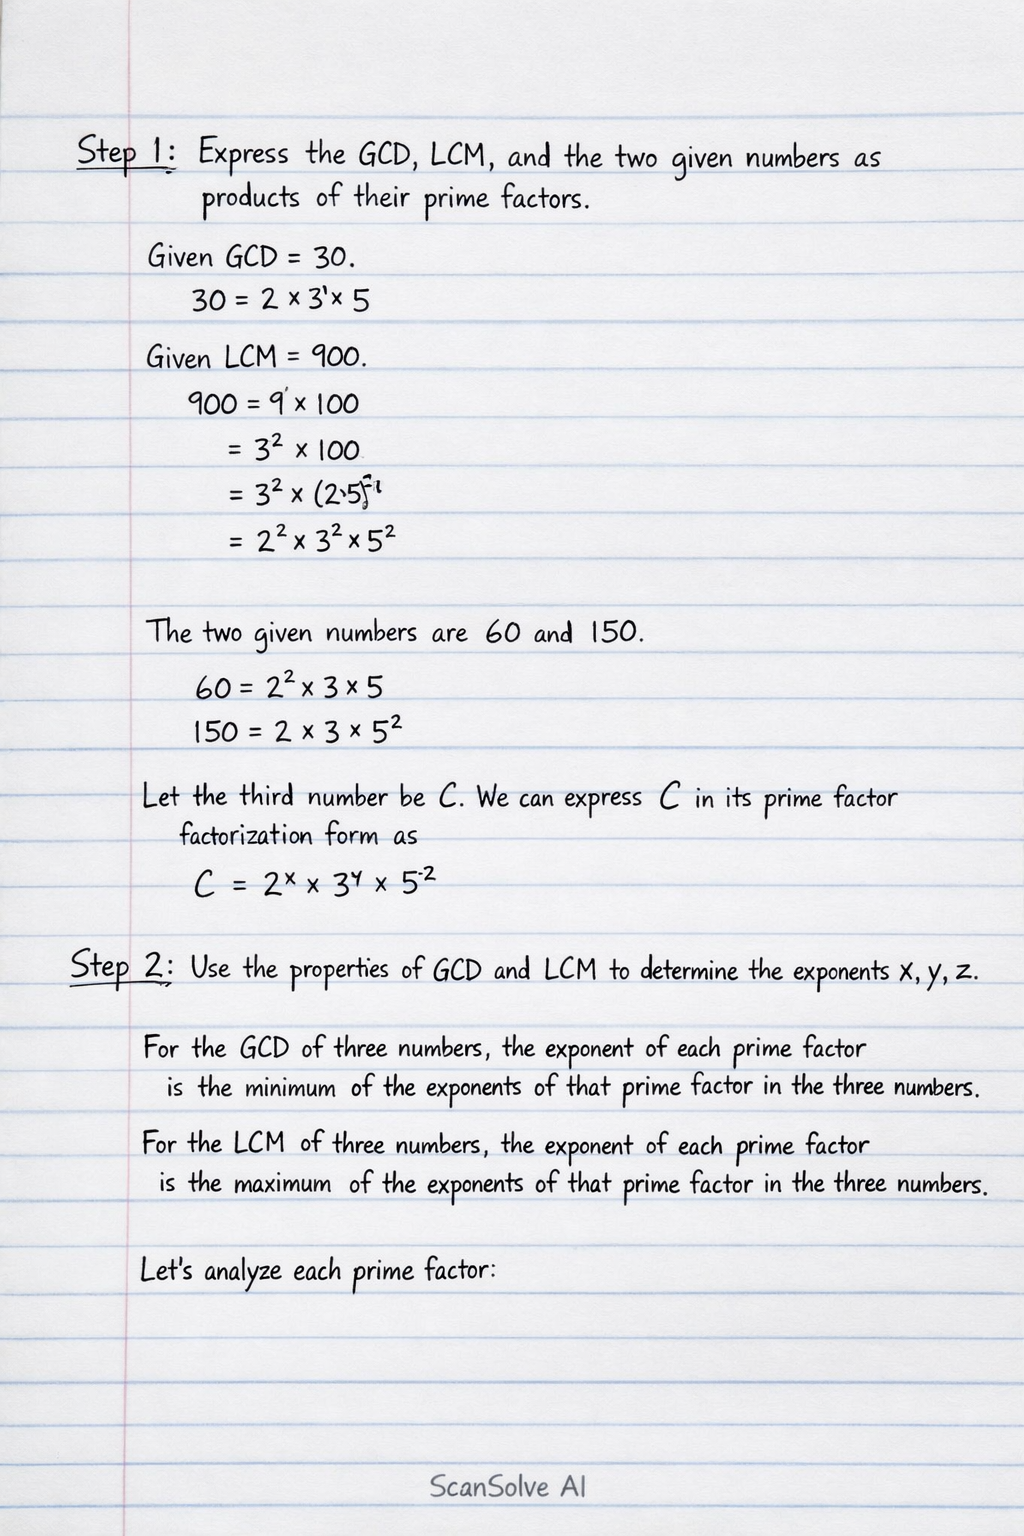 Step 1: Express the GCD, LCM, and the two given numbers as
products of their prime factors.
Given GCD = 30.
30 = 2 × 3' × 5
Given LCM = 900.
900 = 9' × 100
= 3² × 100
= 3² × (2·5)
= 2² × 3² × 5²
The two given numbers are 60 and 150.
60 = 2² × 3 × 5
150 = 2 × 3 × 5²
Let the third number be C. We can express C in its prime factor
factorization form as
C = 2ˣ × 3ʸ × 5⁻²
Step 2: Use the properties of GCD and LCM to determine the exponents x, y, z.
For the GCD of three numbers, the exponent of each prime factor
is the minimum of the exponents of that prime factor in the three numbers.
For the LCM of three numbers, the exponent of each prime factor
is the maximum of the exponents of that prime factor in the three numbers.
Let's analyze each prime factor:
ScanSolve AI